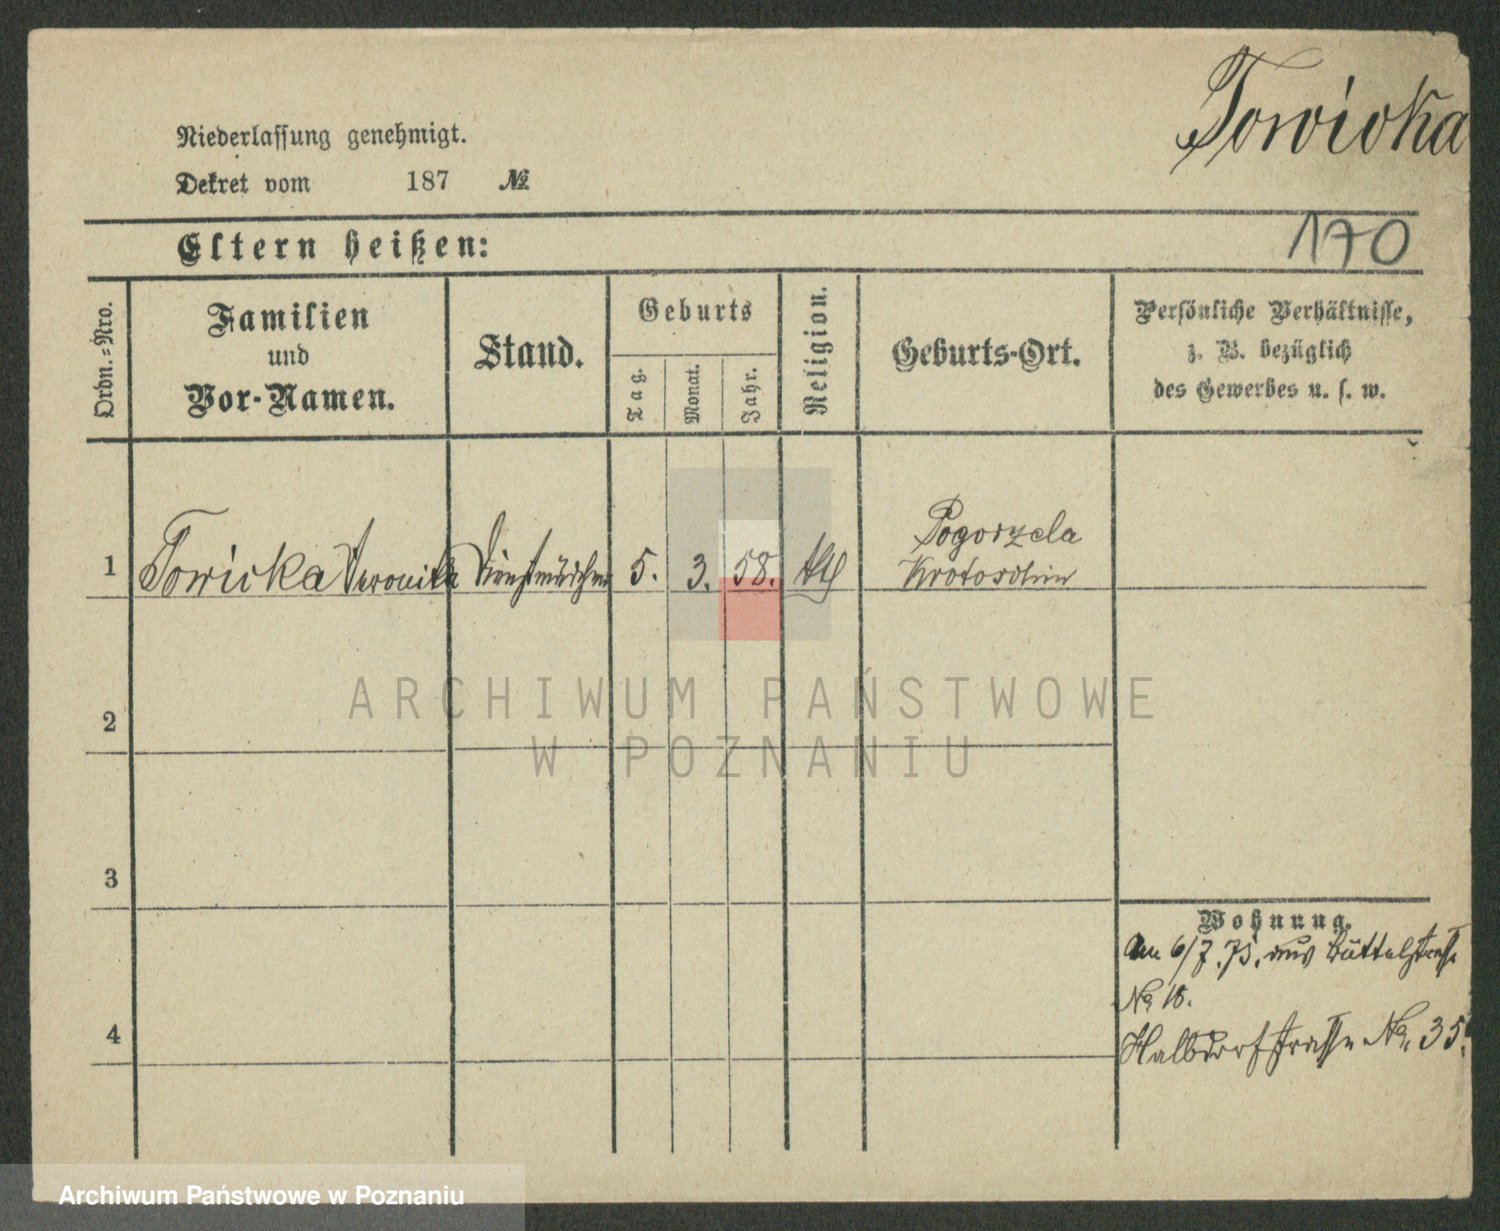 Towicka
Niederlassung genehmigt.
Dekret vom 187 №
170
Eltern heißen:
Ordn.=Nro.
Familien
und
Vor-Namen.
Stand.
Geburts
Tag.
Monat.
Jahr.
Religion.
Geburts-Ort.
Persönliche Verhältnisse,
z. B. bezüglich
des Gewerbes u. s. w.
1 Towicka Veronika Dienstmädchen 5. 3. 58. kth Pogorzela
Krotoschin
2
3
4
Wohnung.
am 6/7. 75. aus Büttelstrasse
No 18.
Halbdorfstrasse No. 35.
ARCHIWUM PAŃSTWOWE
W POZNANIU
Archiwum Państwowe w Poznaniu